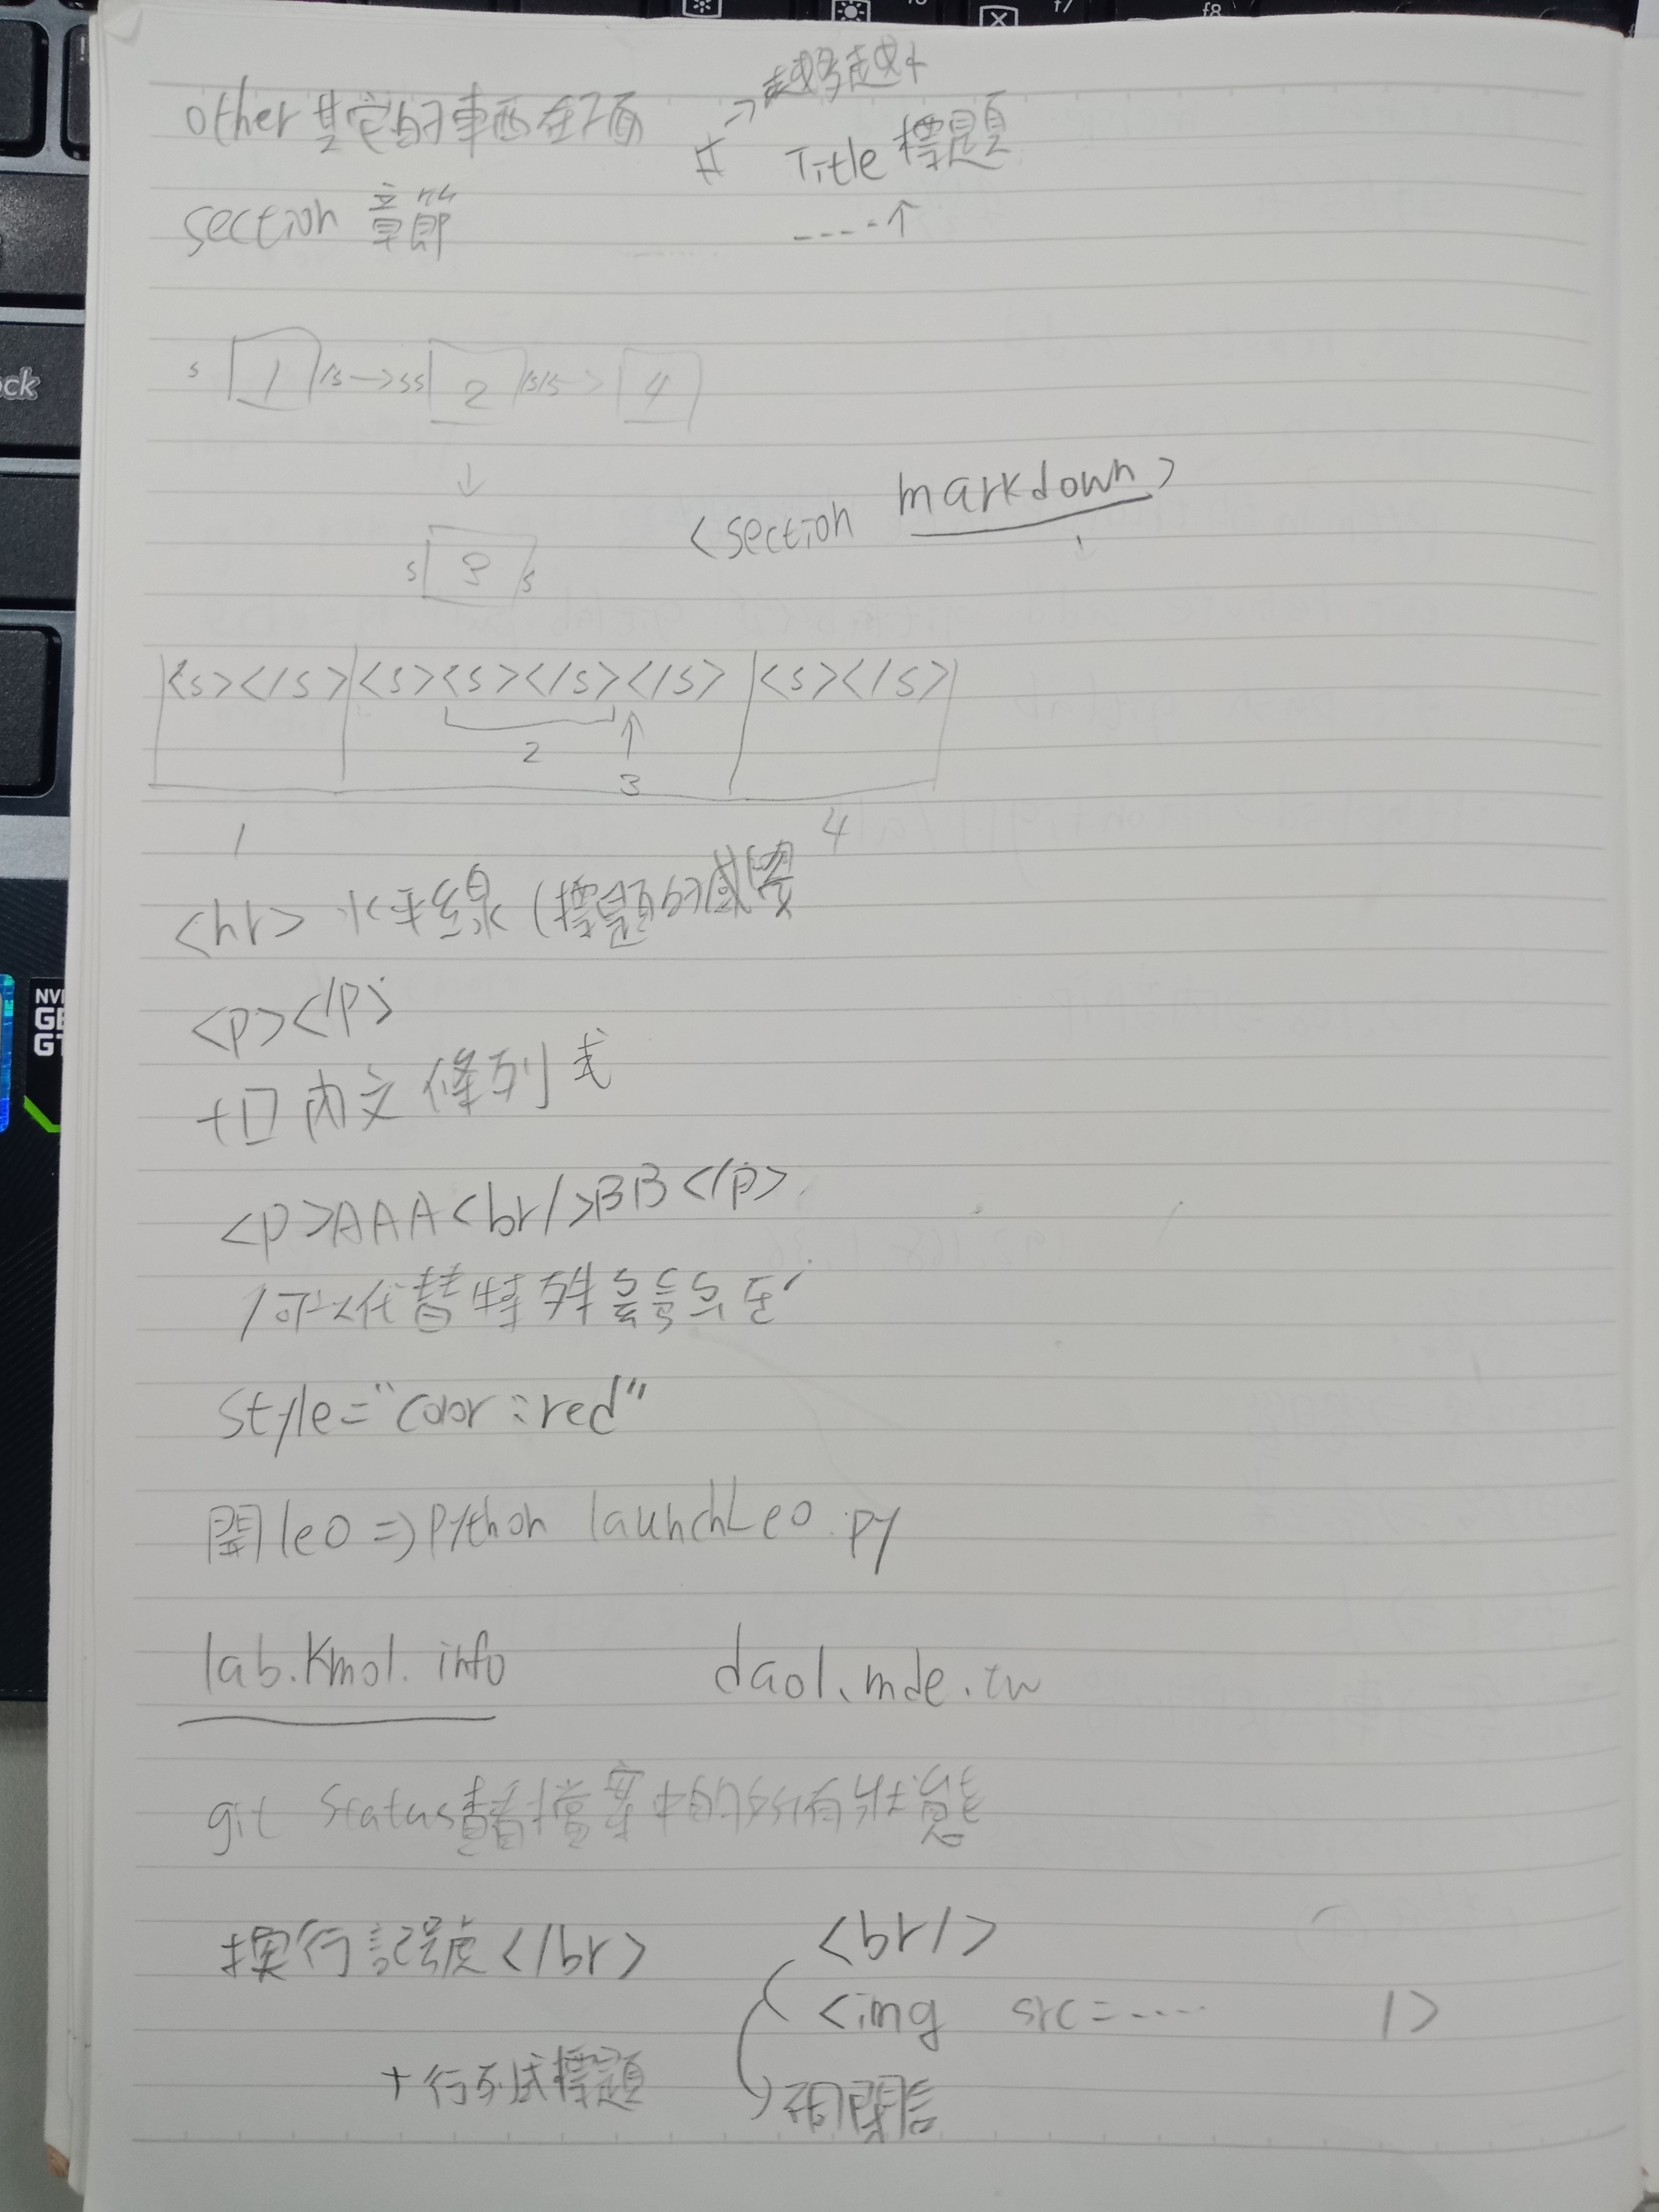 other其它的東西在頁
→越多越小
# Title 標題
----↑
section 章節
s 1 /s→ss 2 /s/s→ 4
↓
s 3 /s
<section markdown>
<s></s> <s><s></s></s> <s></s>
2
3
1
4
<hr> 水平線(標題的感覺
<p></p>
+口 內文 條列式
<p>AAA<br/>BB</p>
/可以代替特殊
style="color:red"
開leo⇒python launchLeo.py
lab.kmol.info
daol.mde.tw
git status查看檔案中的所有狀態
換行記號</br>
<br/>
<img src=····· />
+行列式標題
自閉
NVI
GE
GT
ck
f7
f8